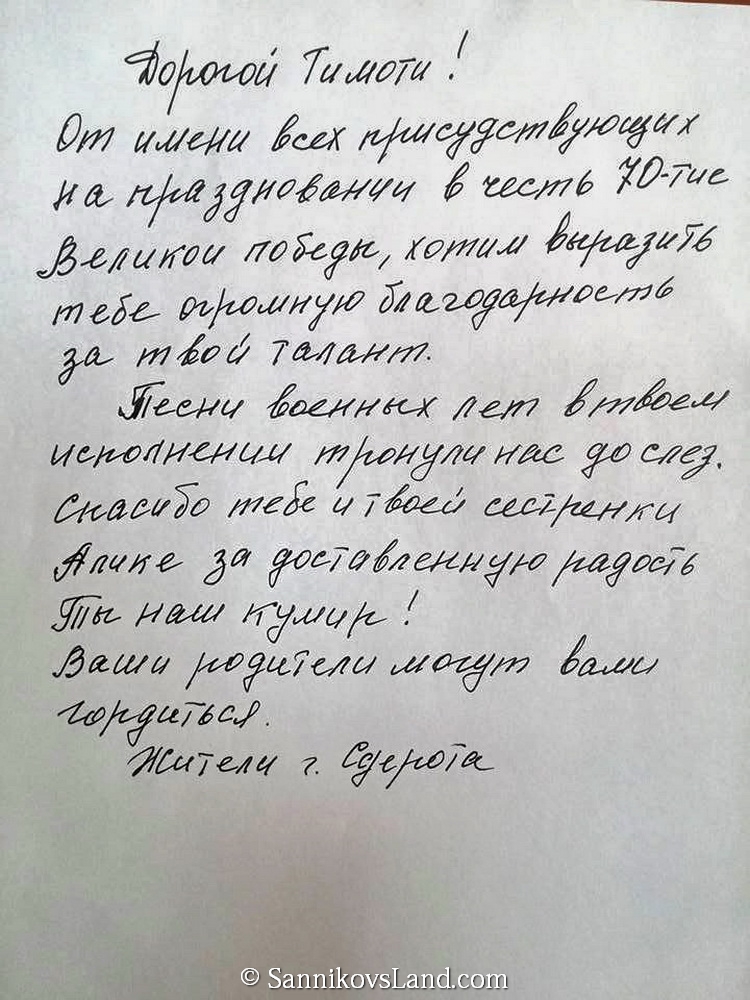 Дорогой Тимоти!
От имени всех присудствующих
на праздновании в честь 70-тие
Великой победы, хотим выразить
тебе огромную благодарность
за твой талант.
Песни военных лет в твоем
исполнении тронули нас до слез.
Спасибо тебе и твоей сестренки
Алике за доставленную радость
Ты наш кумир!
Ваши родители могут вами
гордиться.
Жители г. Сдерота
© SannikovsLand.com